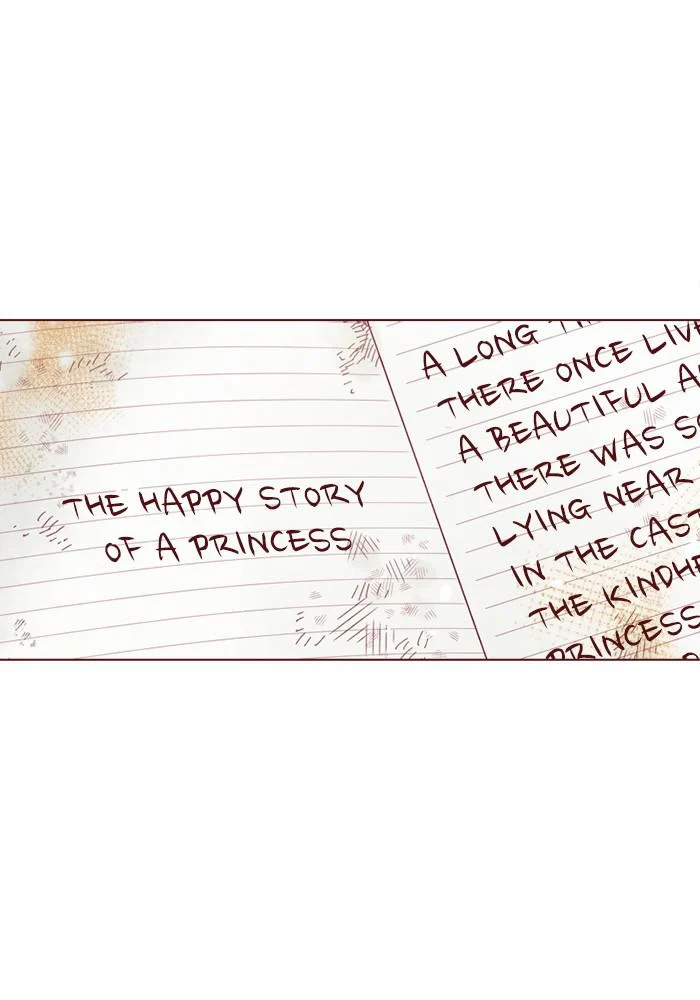 THE HAPPY STORY
OF A PRINCESS
A LONG
THERE ONCE
A BEAUTIFUL
THERE WAS
LYING NEAR
IN THE
THE
PRINCESS